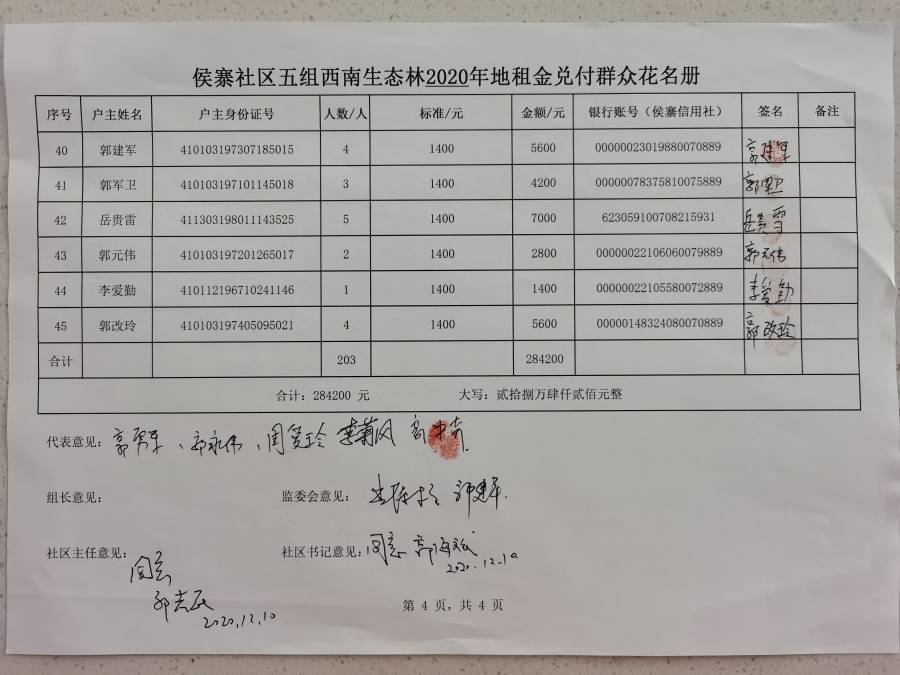 侯寨社区五组西南生态林2020年地租金兑付群众花名册
序号 户主姓名 户主身份证号 人数/人 标准/元 金额/元 银行账号（侯寨信用社） 签名 备注
40 郭建军 410103197307185015 4 1400 5600 00000023019880070889 郭建军
41 郭军卫 410103197101145018 3 1400 4200 00000078375810075889 郭军卫
42 岳贵雷 411303198011143525 5 1400 7000 623059100708215931 岳贵雪
43 郭元伟 410103197201265017 2 1400 2800 00000022106060079889 郭元伟
44 李爱勤 410112196710241146 1 1400 1400 00000022105580072889 李爱勤
45 郭改玲 410103197405095021 4 1400 5600 00000148324080070889 郭改玲
合计 203 284200
合计：284200 元 大写：贰拾捌万肆仟贰佰元整
代表意见：
组长意见： 监委会意见：
社区主任意见： 同意 社区书记意见： 同意
2020.12.10
2020.12.10
第 4 页，共 4 页